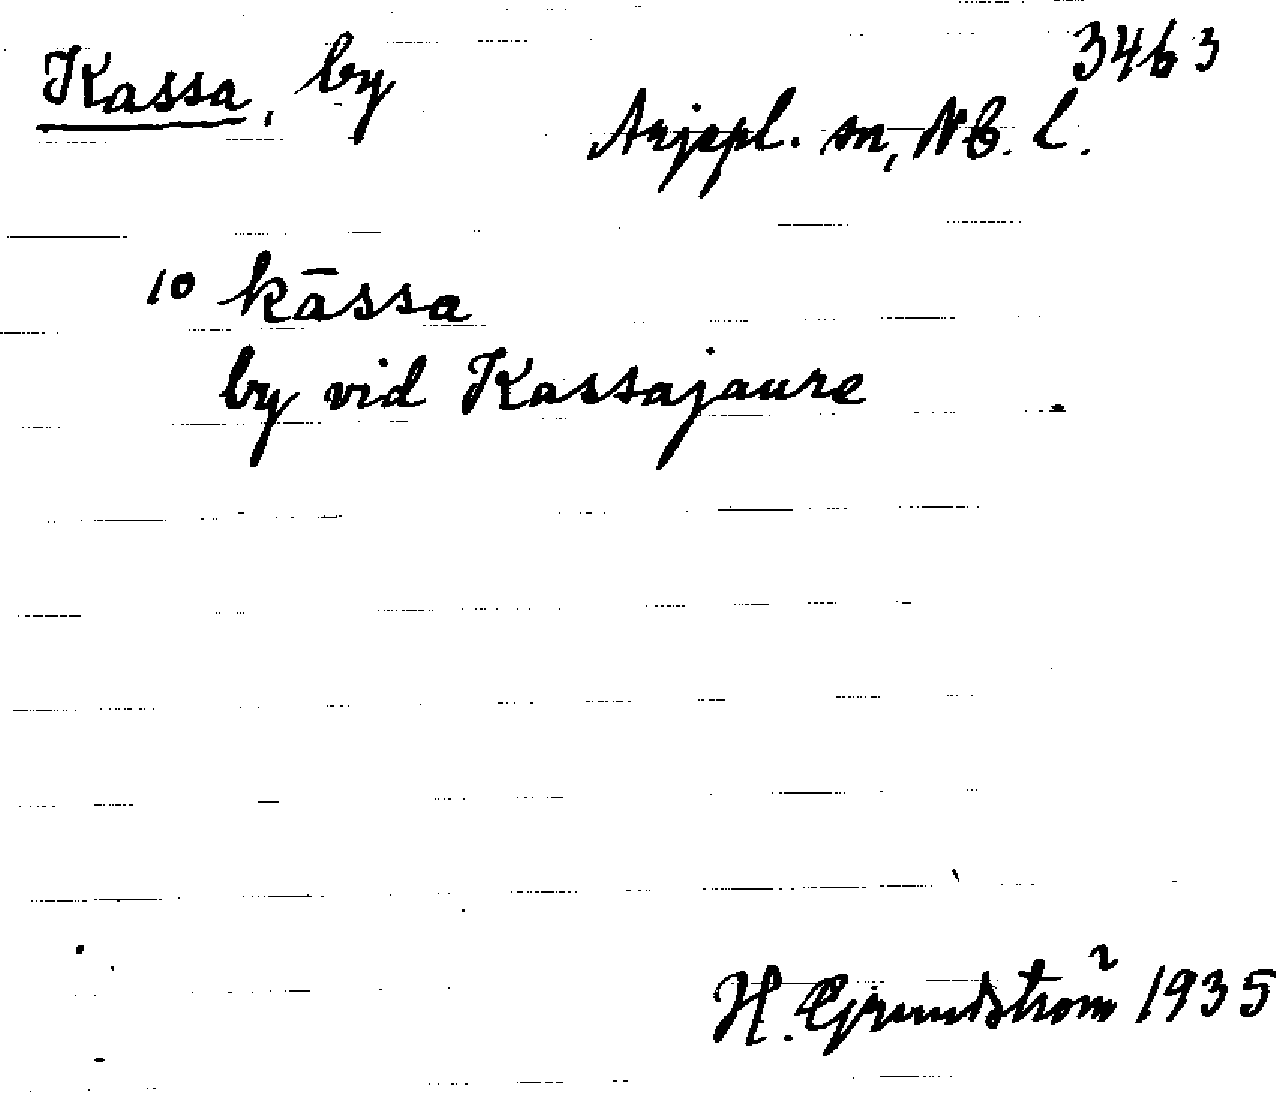 Kassa, by
3463
Arjepl. sn, NB. L.
10 kāssa
by vid Kassajaure
H. Grundström 1935